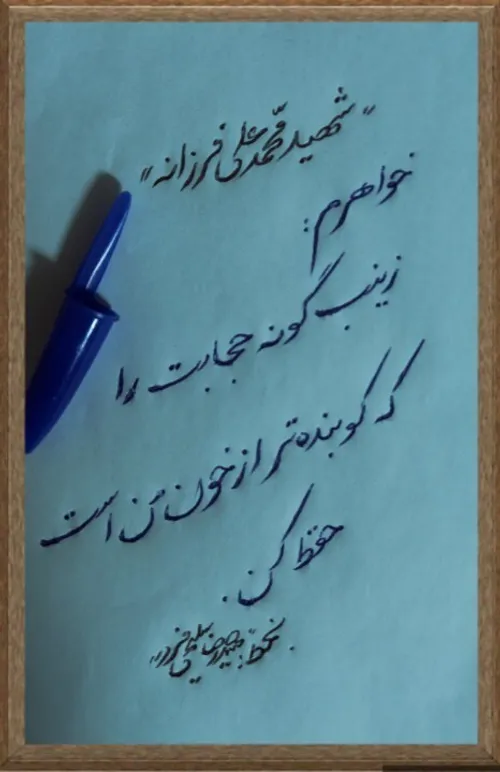 "شهید محمدعلی فرزانه"
خواهرم:
زینب گونه حجابت را
که کوبنده‌تر از خون من است
حفظ کن.
بخط: